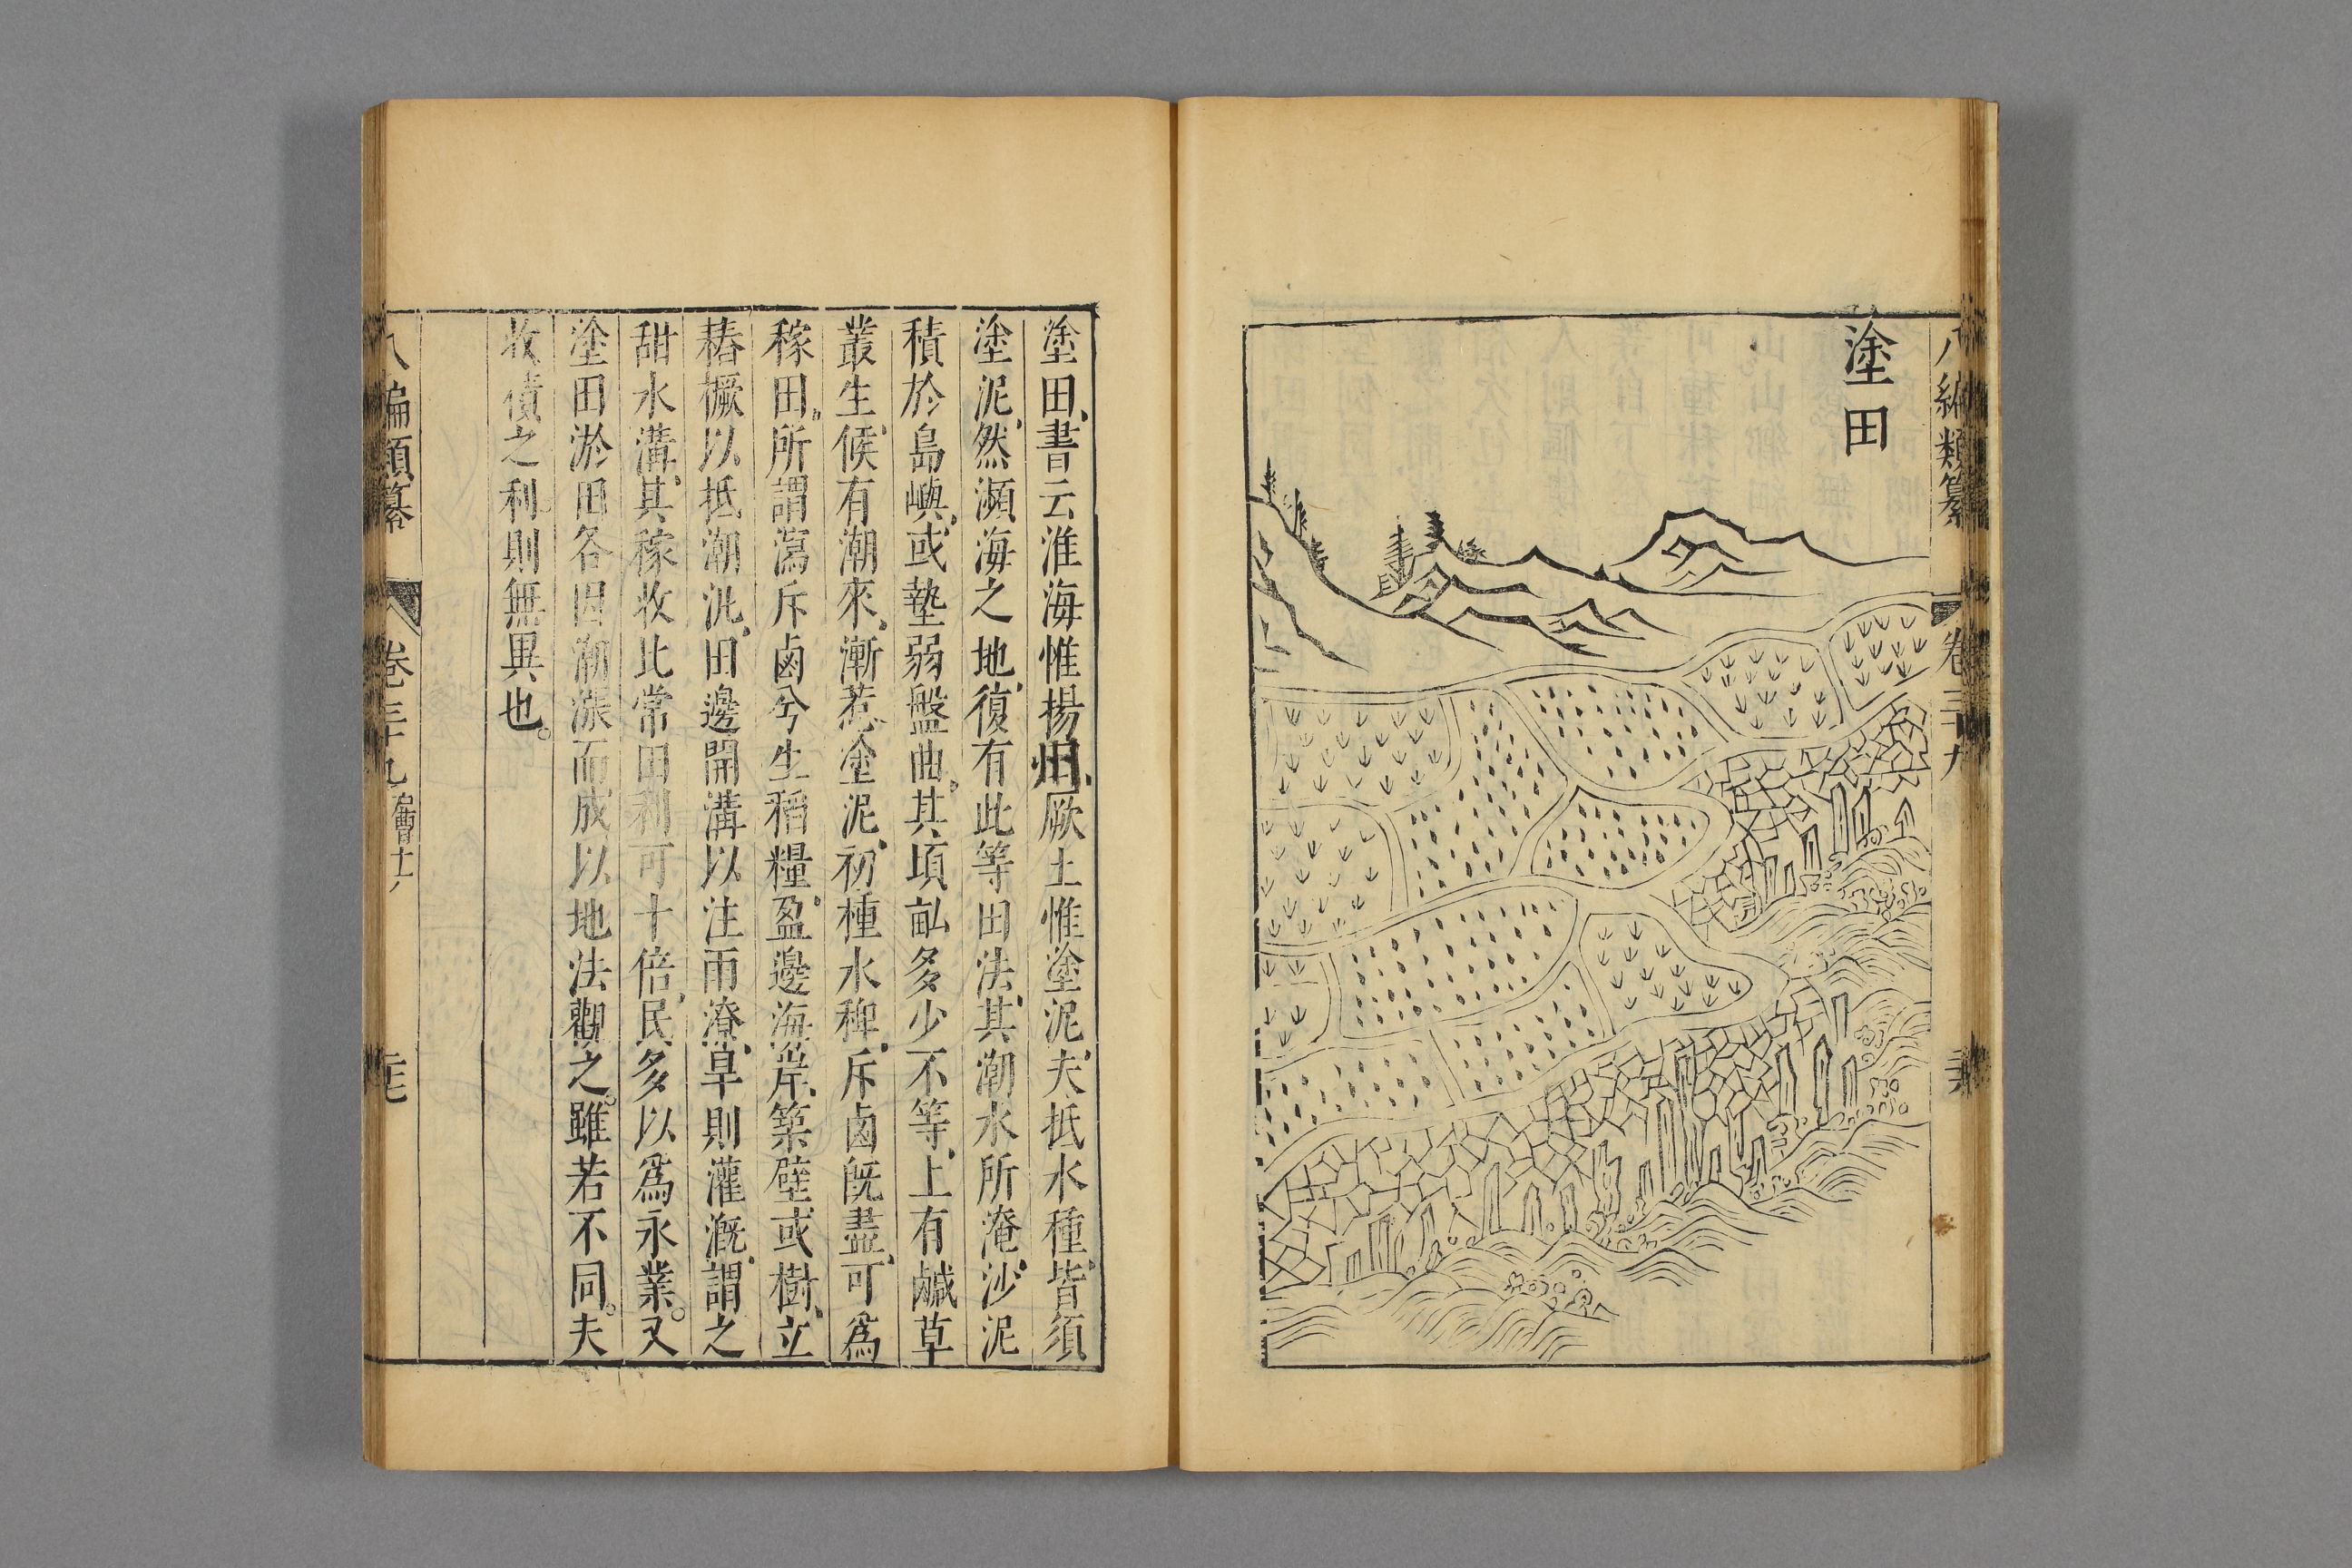 八編類纂
卷三十九
塗田
塗田書云淮海惟揚州厥土惟塗泥夫抵水種皆須
塗泥然瀕海之地復有此等田法其潮水所淹沙泥
積於島嶼或墊弱盤曲其頃畝多少不等上有鹹草
叢生候有潮來漸惹塗泥初種水稗斥鹵既盡可爲
稼田所謂瀉斥鹵兮生稻糧盈邊海岸築壁或樹立
樁橛以抵潮汎田邊開溝以注雨潦旱則灌溉謂之
甜水溝其稼收比常田利可十倍民多以爲永業又
塗田淤田各因潮漲而成以地法觀之雖若不同夫
收債之利則無異也。
八編類纂
卷三十九